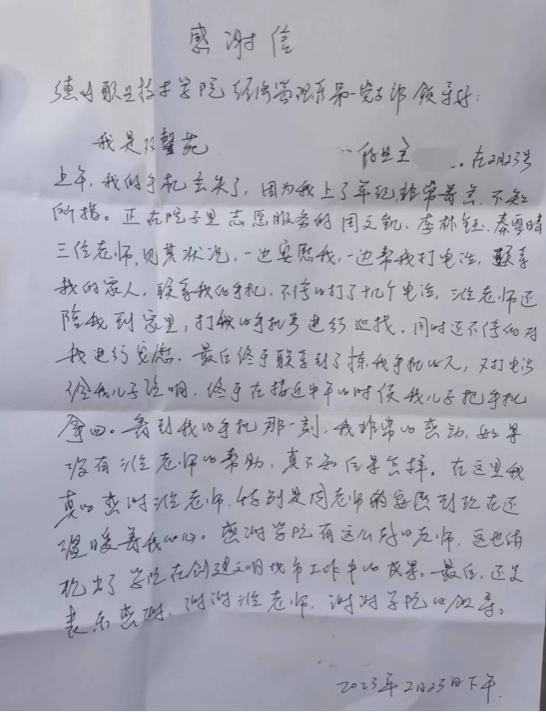 感谢信
德州职业技术学院经济管理系第一党支部领导好:
我是 馨苑 住业主 在2月23号
上午,我的手机丢失了,因为我上了年纪非常着急,不知
所措。正在院子里志愿服务的周文凯、李林钰、秦雪晴
三位老师,见其状况,一边安慰我,一边帮我打电话,联系
我的家人,联系我的手机,不停的打了十几个电话,三位老师还
陪我到家里,打我的手机号进行巡找。同时还不停的对
我进行安慰。最后终于联系到了捡我手机的人,又打电话
给我儿子说明,终于在接近中午的时候我儿子把手机
拿回。看到我的手机那一刻,我非常的感动,如果
没有三位老师的帮助,真不知后果怎样。在这里我
真的感谢三位老师,特别是周老师的安慰到现在还
温暖着我的心。感谢学院有这么好的老师,这也体
现出了学院在创建文明城市工作中的成果。最后,还是
表示感谢,谢谢三位老师,谢谢学院的领导。
2023年2月23日下午